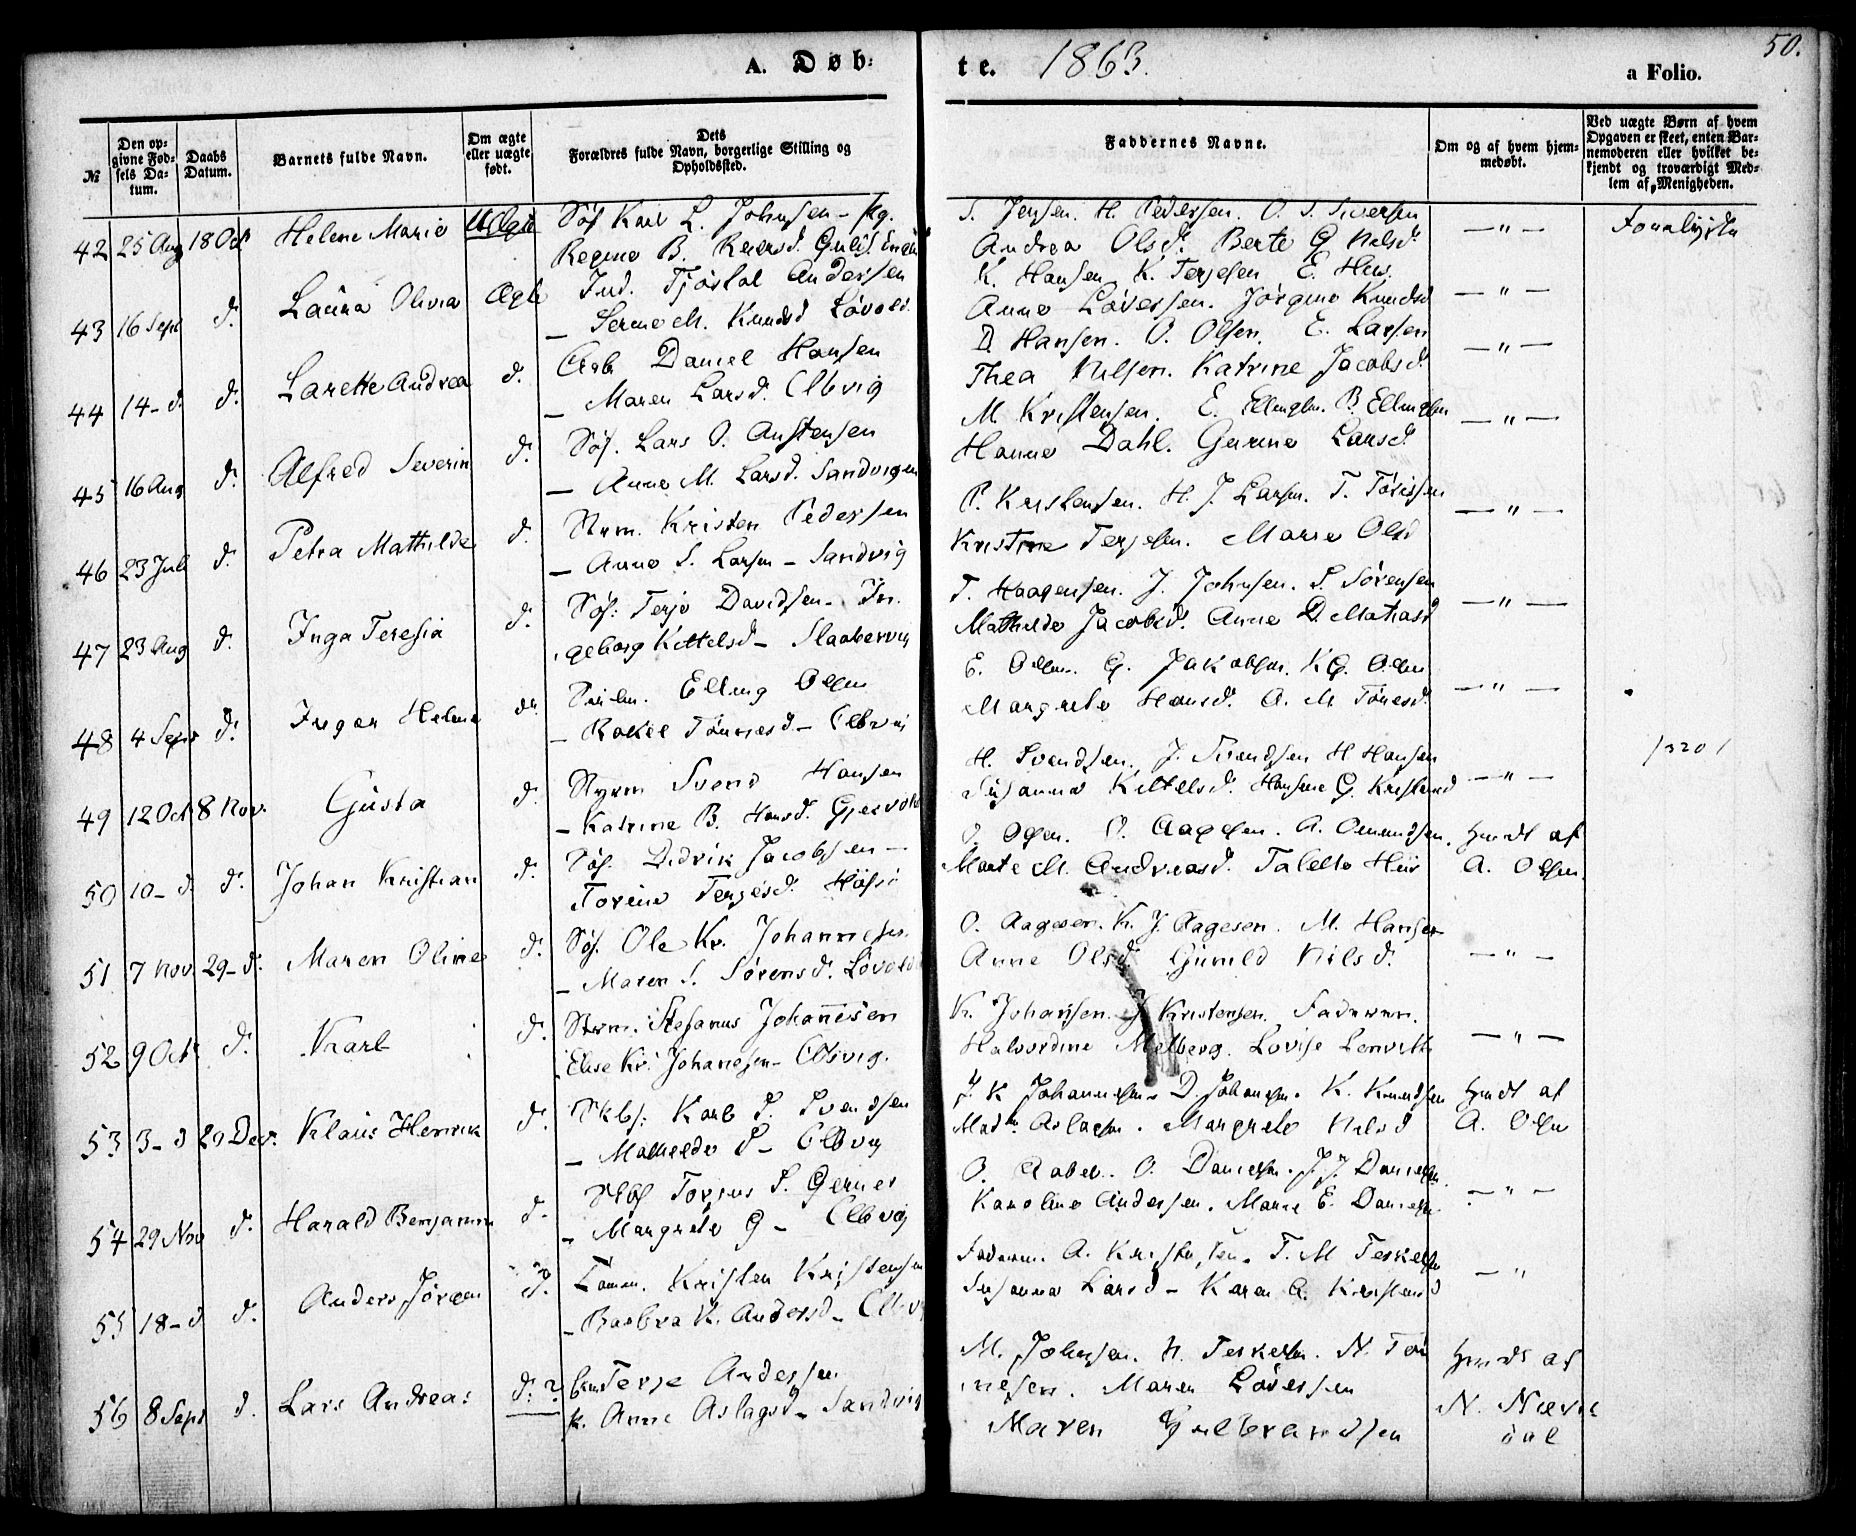 A. Døb-
te. 1863.
50.
a Folio.
№
Den op-
givne Fød-
sels Da-
tum.
Daabs
Datum.
Barnets fulde Navn.
Om ægte
eller uægte
født.
Dets
Forældres fulde Navn, borgerlige Stilling og
Opholdssted.
Faddernes Navne.
Om og af hvem hjem-
medøbt.
Ved uægte Børn af hvem
Opgaven er skeet, enten Bar-
nemoderen eller hvilket be-
kjendt og troværdigt Med-
lem af Menigheden.
42 25 Aug 18 Oct Helene Marie UÆgte Søf Karl L. Johnsen - pg.
Regine B.
S. Jensen. H. Pedersen. O. S. Siversen
Andrea Olsd. Berte G Nelsd. — " —
43 16 Sept d. Laura Olivia Ægte Ind. Tjøstol Andersen
— Serine M. Knudsd Løvold
K. Hansen K. Terjesen E.
Anne Løversen. Jørgine Knudsd — " —
44 14 - d. d. Larette Andrea d. Arb Daniel Hansen
— Maren Larsd. Elbvig
D. Hansen. O. Olsen. E. Larsen
Thea Nilsen. Katrine Jacobsd. — " —
45 16 Aug d. Alfred Severin d. Søf. Lars O. Austensen
— Anne M. Larsd. Sandvigen
M. Kristensen. E. Ellingsn. P. Ellingsn
Hanne Dahl. Gurine Larsd. — " —
46 23 Juli d. Petra Mathilde d. Sturm. Kristen Pedersen
— Anne S. Larsen - Sandvig
P. Kristensen. H. J. Larsen. T.
Kristine Terjesen. Marie Olsd — " —
47 23 Aug d. Inga Teresia d. Søf. Terje Davidsen - In.
geborg Kittelsd -
T. Haagensen. J. Johnsen. S Sørensen
Mathilde Jacobsd. Anne D. Matiasd — " —
48 4 Sept d. Inger Helene d. Elling Olsen
— Rakel Tønnesd - Elbvig
E. Olsen. G. Jakobsen. K G. Olsen
Margrete Hansd. A. M Tønesd. — " —
49 12 Oct 8 Nov. Gusta d. Styrm Svend Hansen
— Katrine B. Hansd.
H. Svendsen. J. Svendsen H Hansen
Susanna Kittelsd. Hansine G. Kristensd — " —
50 10 - d. d. Johan Kristian d. Søf. Didrik Jacobsen —
Torine Terjesd.
O. Olsen. O. Aagesen. A. Omundsen.
Marte M. Andreasd. Talette
Hjmdt af
A. Olsen.
51 7 Nov 29 - d. Maren Oline d. Søf. Ole Kr. Johannesen.
— Maren S. Sørensd. Løvold
O. Aagesen. K. J. Aagesen. M. Hansen
Anne Olsd. Gunild Nilsd. — " —
52 9 Oct d. Karl d. Sturm. Stefanus Johannesen
Elise Kr. Johanesen - Elbvig.
K. Johansen. J Kristensen. Faderen.
Halvordine Melberg. Lovise — " —
53 3 - d 29 Dec. Klaus Henrik d. Skbf: Karl S. Svendsen
— Mathilde S - Elbvig
J. K Johannesen. D. Johansen. K. Knudsen
Mad. Aslagsen. Margrete Nilsd
Hjmdt af
A. Olsen
54 29 Nov d. Harald Benjamin d. Skbf Torjus S. Gerner
— Margrete G - Elbvig
O. Aabel. O. Danielsen. J. J. Danielsen.
Karoline Andersen. Marie E. Danielsen — " —
55 18 - d d. Anders Jørgen d. Tømm. Kristen Kristensen
— Barbra K. Andersd - Elbvig
Faderen. A. Kristensen. T. M Terkelsen
Susanna Larsd - Karen A. Kristensd — "
56 8 Sept d. Lars Andreas d. ? Terje Andersen
K. Anne Aslagsd - Sandvig
M. Johnsen. N. Terkelsen. N. Tøn
nesen. Maren Løversen
Maren Gulbrandsen
Hjmdt af
N.